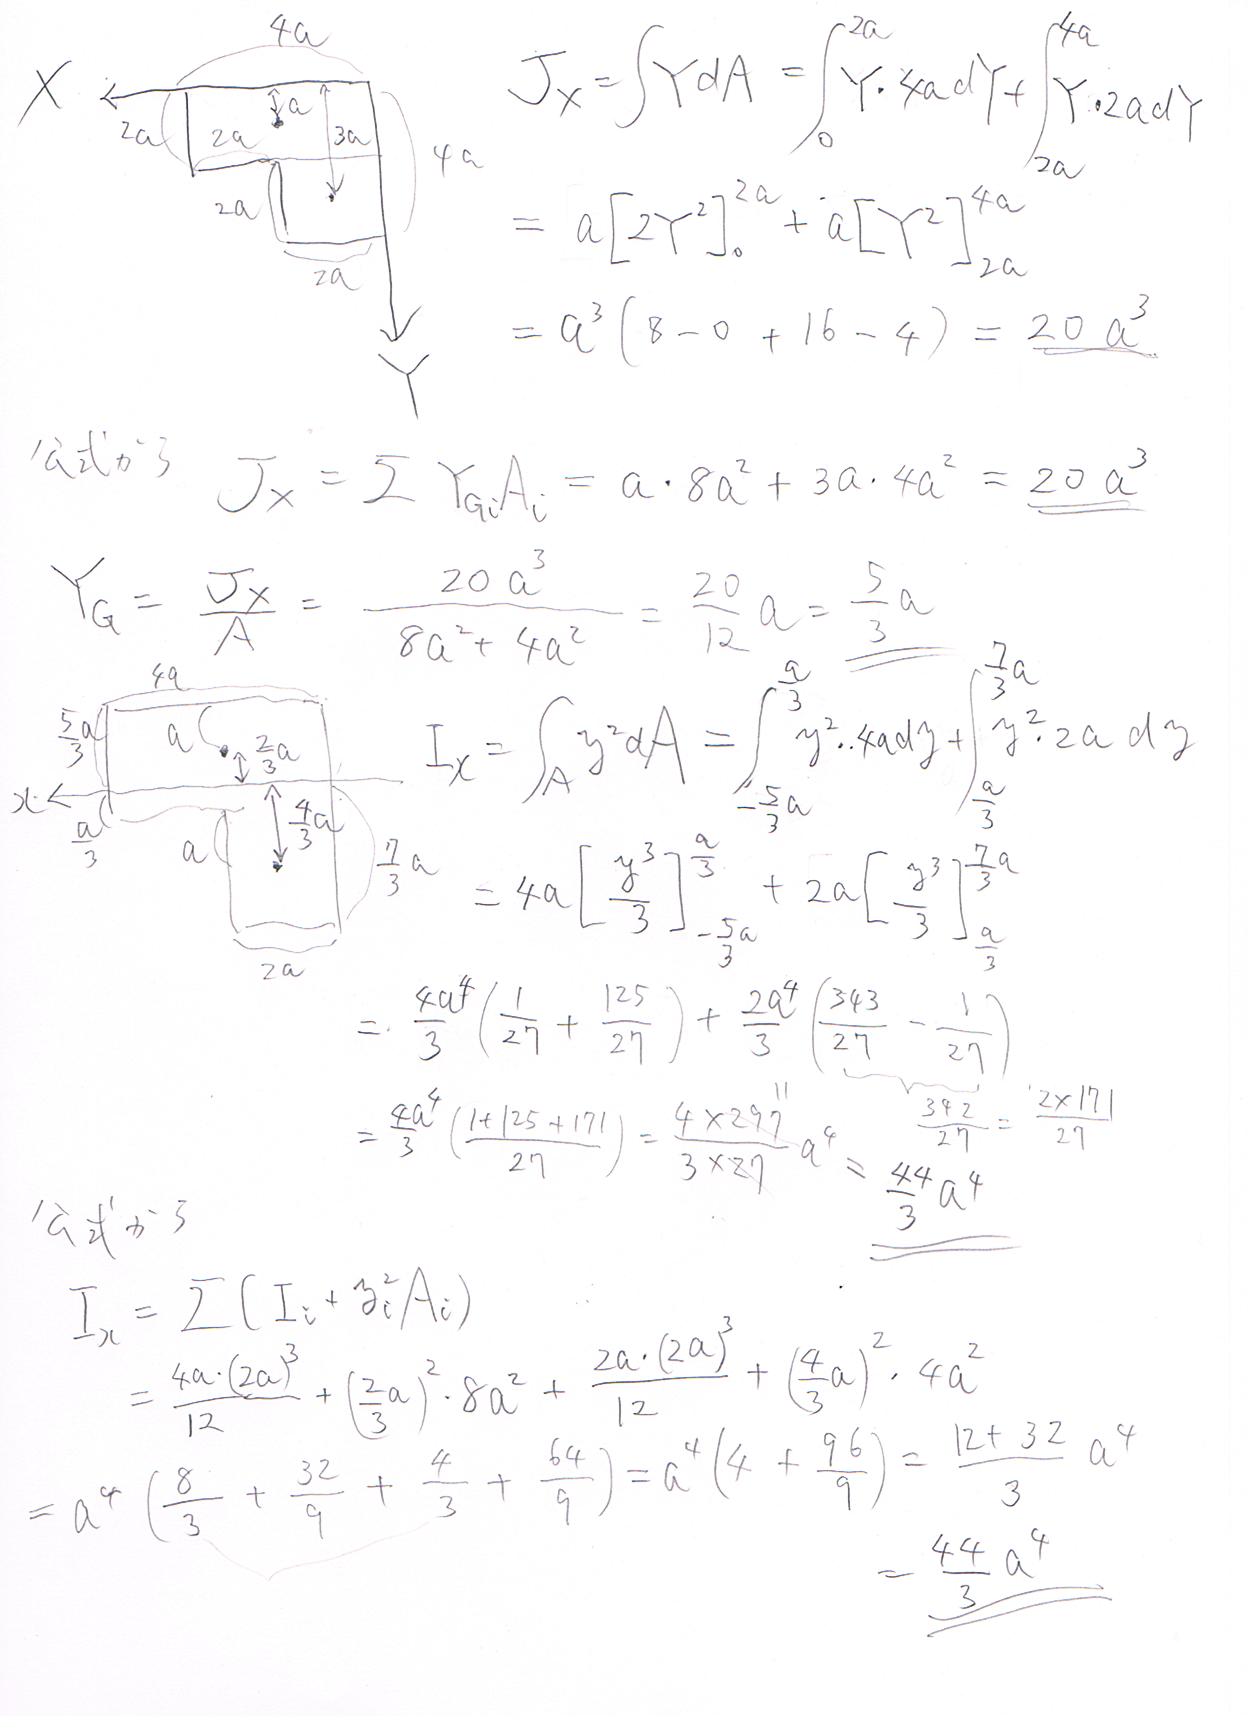 4a
X
2a
2a
a
3a
4a
2a
2a
Y
J_X = ∫YdA = ∫_0^{2a} Y·4adY + ∫_{2a}^{4a} Y·2adY
= a[2Y²]_0^{2a} + a[Y²]_{2a}^{4a}
= a³(8 - 0 + 16 - 4) = 20a³
公式から J_X = Σ Y_{Gi}A_i = a·8a² + 3a·4a² = 20a³
Y_G = J_X/A = 20a³/(8a² + 4a²) = 20/12 a = 5/3 a
4a
5/3 a
a
2/3 a
x
a/3
4/3 a
a
7/3 a
2a
I_x = ∫_A y²dA = ∫_{-5/3 a}^{a/3} y²·4ady + ∫_{a/3}^{7/3 a} y²·2ady
= 4a[y³/3]_{-5/3 a}^{a/3} + 2a[y³/3]_{a/3}^{7/3 a}
= 4a⁴/3 (1/27 + 125/27) + 2a⁴/3 (343/27 - 1/27)
342/27 = 2×171/27
= 4a⁴/3 ((1+125+171)/27) = (4×297)/(3×27) a⁴ = 44/3 a⁴
11
公式から
I_x = Σ(I_i + y_i²A_i)
= 4a·(2a)³/12 + (2/3 a)²·8a² + 2a·(2a)³/12 + (4/3 a)²·4a²
= a⁴(8/3 + 32/9 + 4/3 + 64/9) = a⁴(4 + 96/9) = (12+32)/3 a⁴
= 44/3 a⁴